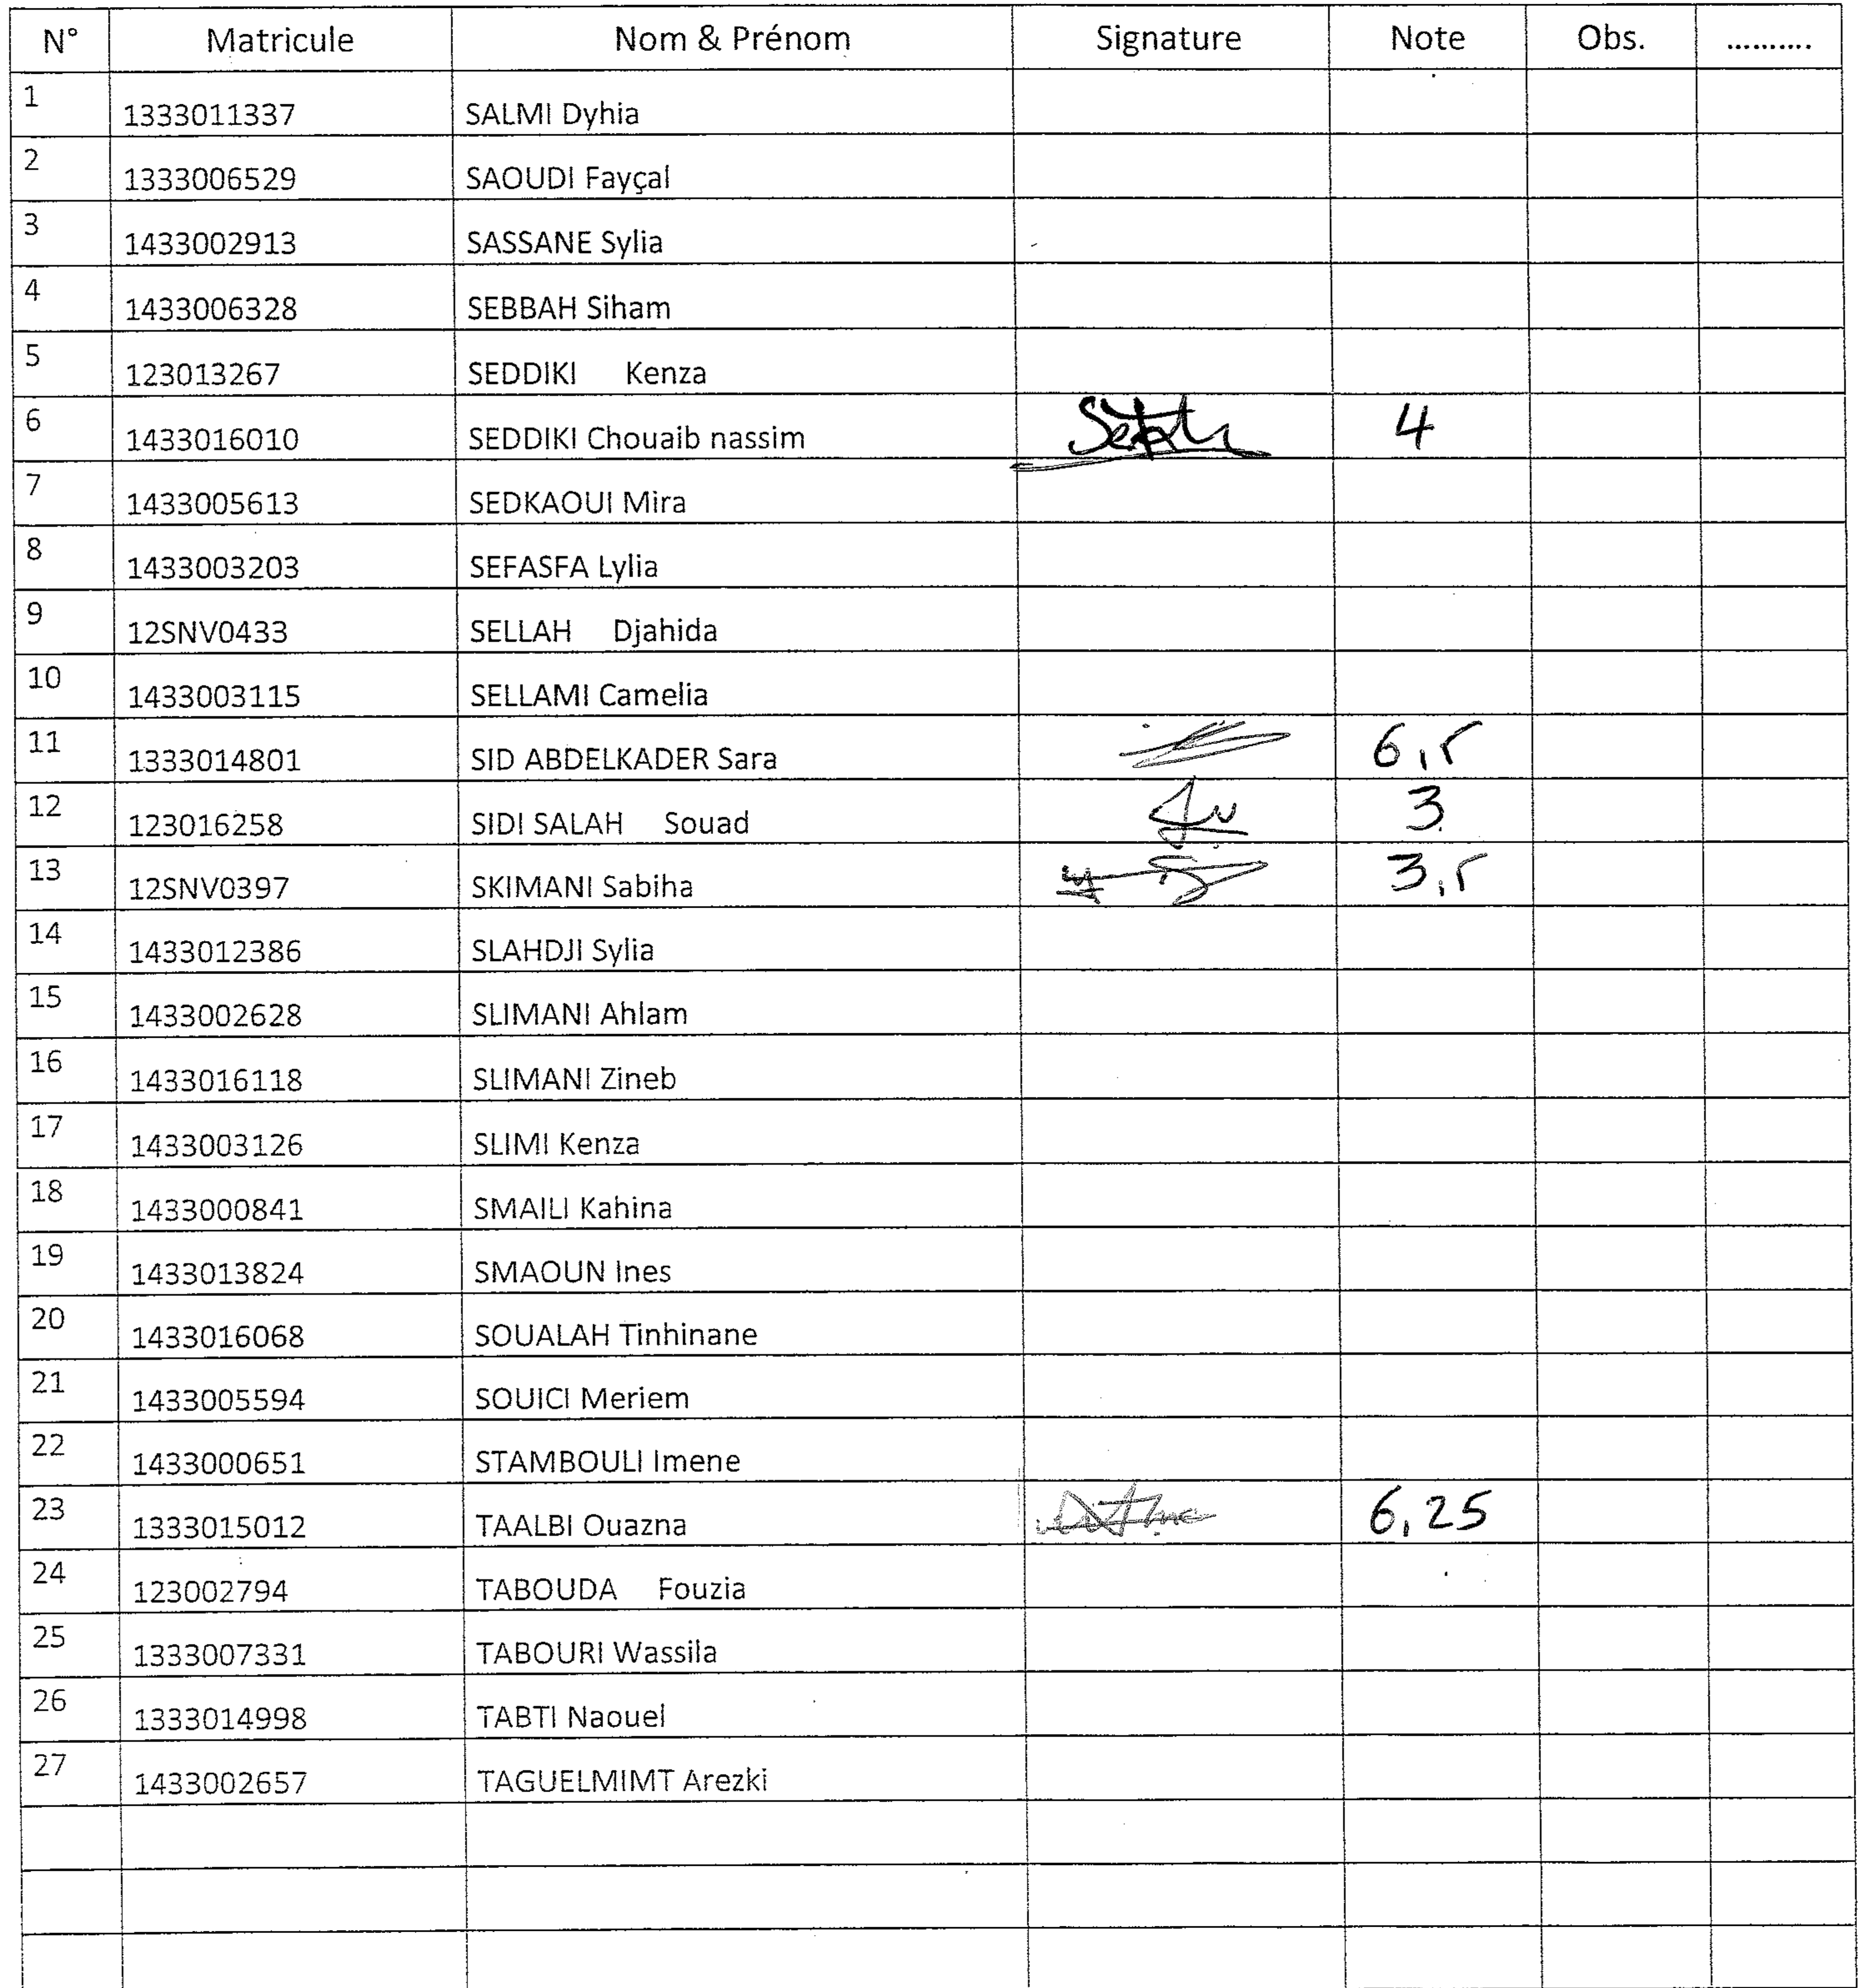 N° Matricule Nom & Prénom Signature Note Obs. ..........
1 1333011337 SALMI Dyhia
2 1333006529 SAOUDI Fayçal
3 1433002913 SASSANE Sylia
4 1433006328 SEBBAH Siham
5 123013267 SEDDIKI Kenza
6 1433016010 SEDDIKI Chouaib nassim 4
7 1433005613 SEDKAOUI Mira
8 1433003203 SEFASFA Lylia
9 12SNV0433 SELLAH Djahida
10 1433003115 SELLAMI Camelia
11 1333014801 SID ABDELKADER Sara 6,5
12 123016258 SIDI SALAH Souad 3
13 12SNV0397 SKIMANI Sabiha 3,5
14 1433012386 SLAHDJI Sylia
15 1433002628 SLIMANI Ahlam
16 1433016118 SLIMANI Zineb
17 1433003126 SLIMI Kenza
18 1433000841 SMAILI Kahina
19 1433013824 SMAOUN Ines
20 1433016068 SOUALAH Tinhinane
21 1433005594 SOUICI Meriem
22 1433000651 STAMBOULI Imene
23 1333015012 TAALBI Ouazna 6,25
24 123002794 TABOUDA Fouzia
25 1333007331 TABOURI Wassila
26 1333014998 TABTI Naouel
27 1433002657 TAGUELMIMT Arezki